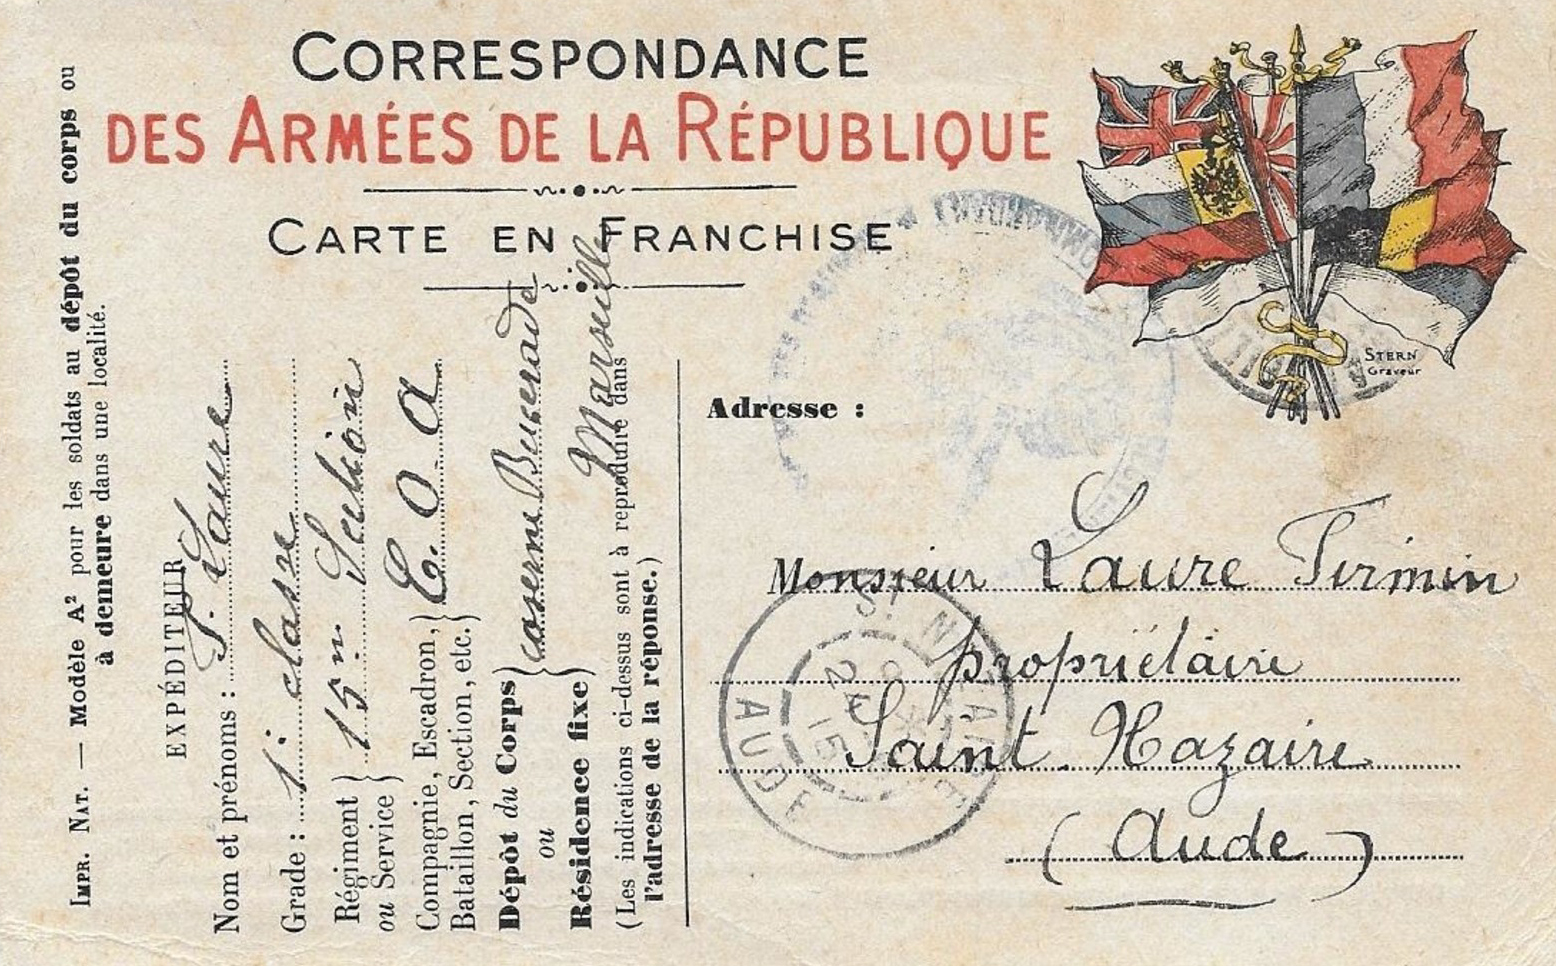 CORRESPONDANCE
DES ARMÉES DE LA RÉPUBLIQUE
CARTE EN FRANCHISE
STERN
Graveur
IMPR. NAT. — Modèle A² pour les soldats au dépôt du corps ou
à demeure dans une localité.
EXPÉDITEUR
Nom et prénoms : P. Laure
Grade : 1e classe
Régiment
ou Service } 15e Section
Compagnie, Escadron,
Bataillon, Section, etc. } C. O. A
Dépôt du Corps
ou
Résidence fixe } caserne
Marseille
(Les indications ci-dessus sont à reproduire dans
l'adresse de la réponse.)
Adresse :
Monsieur Laure Firmin
propriétaire
Saint Nazaire
(Aude)
ST NAZAIRE
24
15
AUDE